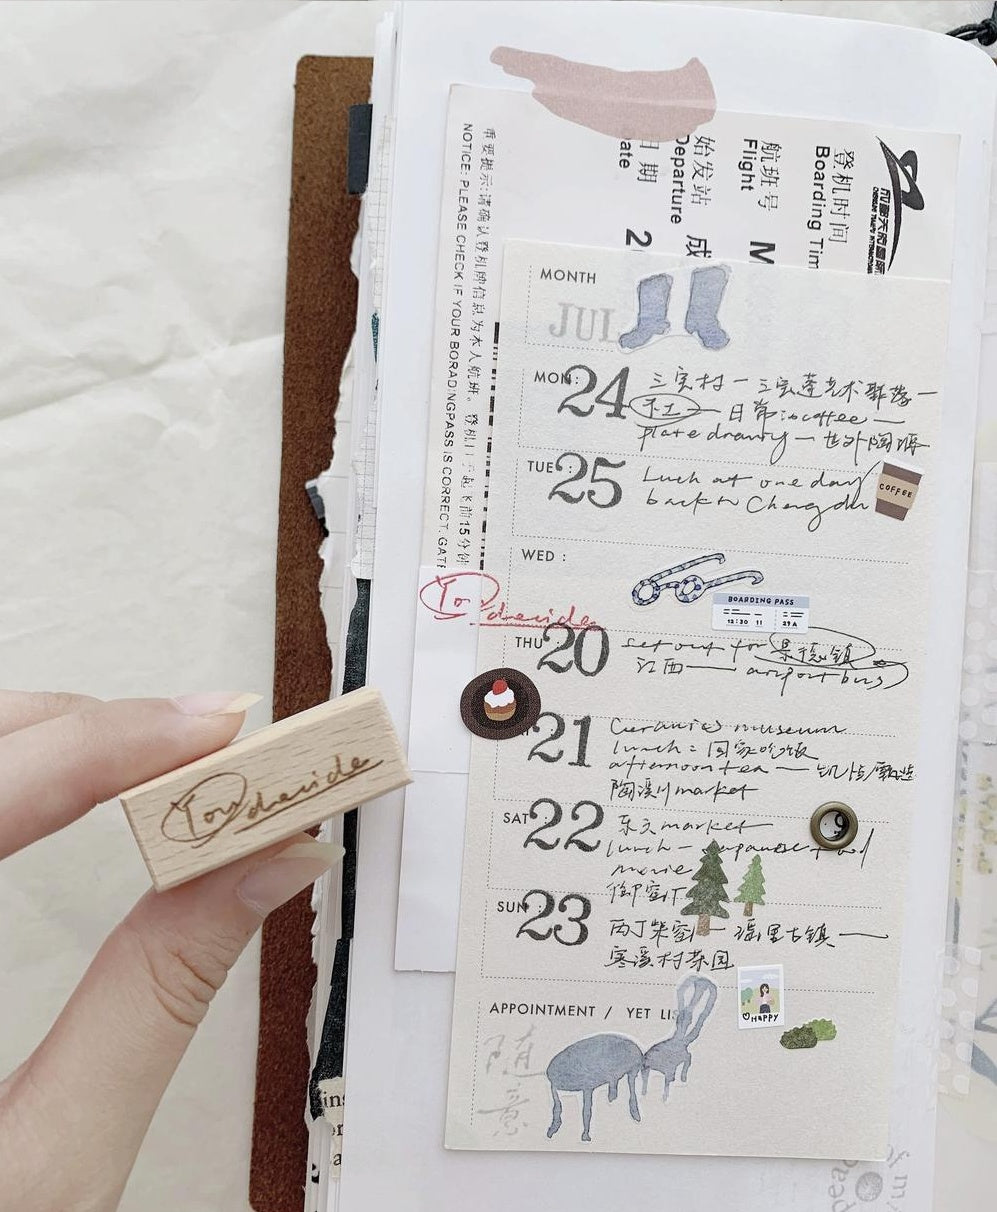 登机时间
Boarding Tim
航班号
Flight
M
始发站
Departure
成
日期
ate
2
重要提示:请确认登机牌信息为本人航班。登机口于起飞前15分钟
NOTICE: PLEASE CHECK IF YOUR BORADINGPASS IS CORRECT. GATE
MONTH
JUL
MON: 24
三宝村一三宝蓬艺术聚落一
日常 coffee
plate drawing
TUE: 25
Luch at one day
back to Chengdu
COFFEE
WED:
BOARDING PASS
12:30 11 27A
You decide
THU 20
set out for 景德镇
江西 airport bus
21
Ceramics museum
lunch: 国家吃饭
afternoon tea
陶溪川 market
SAT 22
乐天 market
lunch - Japanese food
movie
御窑厂
SUN 23
丙丁柴窑一瑶里古镇
寒溪村茶园
APPOINTMENT / YET LIS
HAPPY
随意
You decide